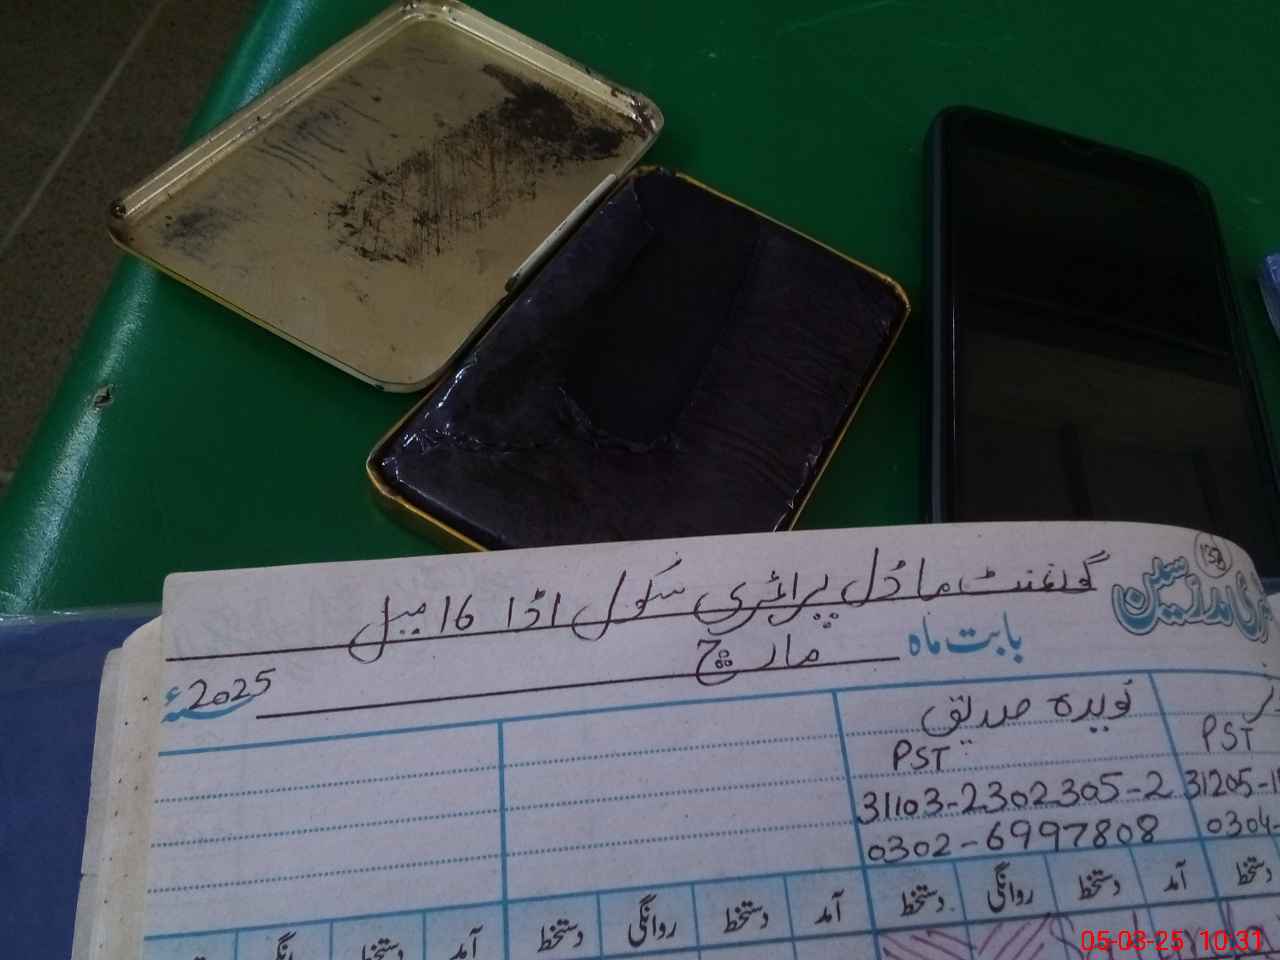 138
ری مدرسین
گورنمنٹ ماڈل پرائمری سکول اڈا 16 میل
بابت ماہ مارچ 2025ء
نویدہ صدیق
PST PST
31103-2302305-2 31205-1
0302-6997808 0304-
دستخط آمد دستخط روانگی دستخط آمد دستخط روانگی دستخط آمد دستخط
05-03-25 10:31